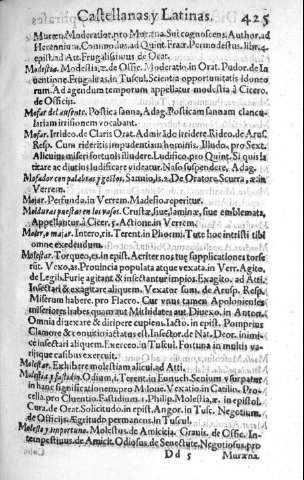 Castellanas y Latinas. 425
Muræn. Moderatior, pro Muræna. Sui cognoscens, Author. ad
Herennium. Commodus, ad Quint. Fraꝫ. Permodestus. libr. 4.
epist. ad Att. Frugalissimus de Orat.
Modestia. Modestia, æ, de Offic. Moderatio, in Orat. Pudor. de In
uentione. Frugalitas, in Tuscul. Scientia opportunitatis idoneo
rum. Ad agendum temporum appellatur modestia à Cicero.
de Officijs.
Mofar del ausente. Postica sanna, Adag. Posticam sannam clancu
lariam irrisionem vocabant.
Mofar. Irrideo. de Claris Orat. Admirãde irridere. Rideo. de Arus.
Resp. Cum rideritis impudentiam hominis. Illudo. pro Sext.
Alicuius miseri fortunis illudere. Ludifico. pro Quint. Si quis la
titare ac diutius ludificare videatur. Naso suspendere, Adag.
Mofador con palabras y gestos. Sannio, is. De Oratore. Scurra, æ. in
Verrem.
Mojar. Perfundo. in Verrem. Madefio. reperitur.
Molduras puestas en los vasos. Crustæ, siue, laminæ, siue emblemata,
Appellãtur à Cicer. 5. Actione in Verrem.
Moler, o majar. Intero, is. Terent. in Phormi. Tute hoc intristi tibi
omne exedendum.
Molestar. Torqueo, es. in epist. Acriter nos tuæ supplicationes torse
rũt. Vexo, as. Prouincia populata atque vexata in Verr. Agito.
de Legib. Furię agitant & insectantur impios. Exagito. ad Att.
Insectari & exagitare aliquem. Vexator sum. de Arusp. Resp.
Miserum habere. pro Flacco. Cur vnus tamen Apolonienses
miseriores habes quam aut Mithridates aut
Omnia direxare & diripere cupiens. Iacto. in epist. Pompeius
Clamore & conuitio iactatus est. Insector. de Nat. Deor. inimi-
cè insectari aliquem. Exerceo. in Tuscul. Fortuna in multis va-
rijsque casibus exercuit.
Molestar. Exhibere molestiam alicui. ad Atti.
Molestia y fastidio. Odium, i. Terent. in Eunuch. Senium vsurpatur
in hanc significationem. pro Milone. Vexatio. in Catilin. Pro
cella. pro Cluentio. Fastidium. 1. Philip. Molestia, æ. in epistol.
Cura. de Orat. Solicitudo. in epist. Angor. in Tusc. Negotium.
de Officijs. Ægritudo permanens in Tuscul.
Molesto y importuno. Molestus. de Amicitia. Grauis. de Offic. In-
tempestiuus. de Amicit. Odiosus. de Senectute. Negotiosus. pro
Dd 5 Muræna.